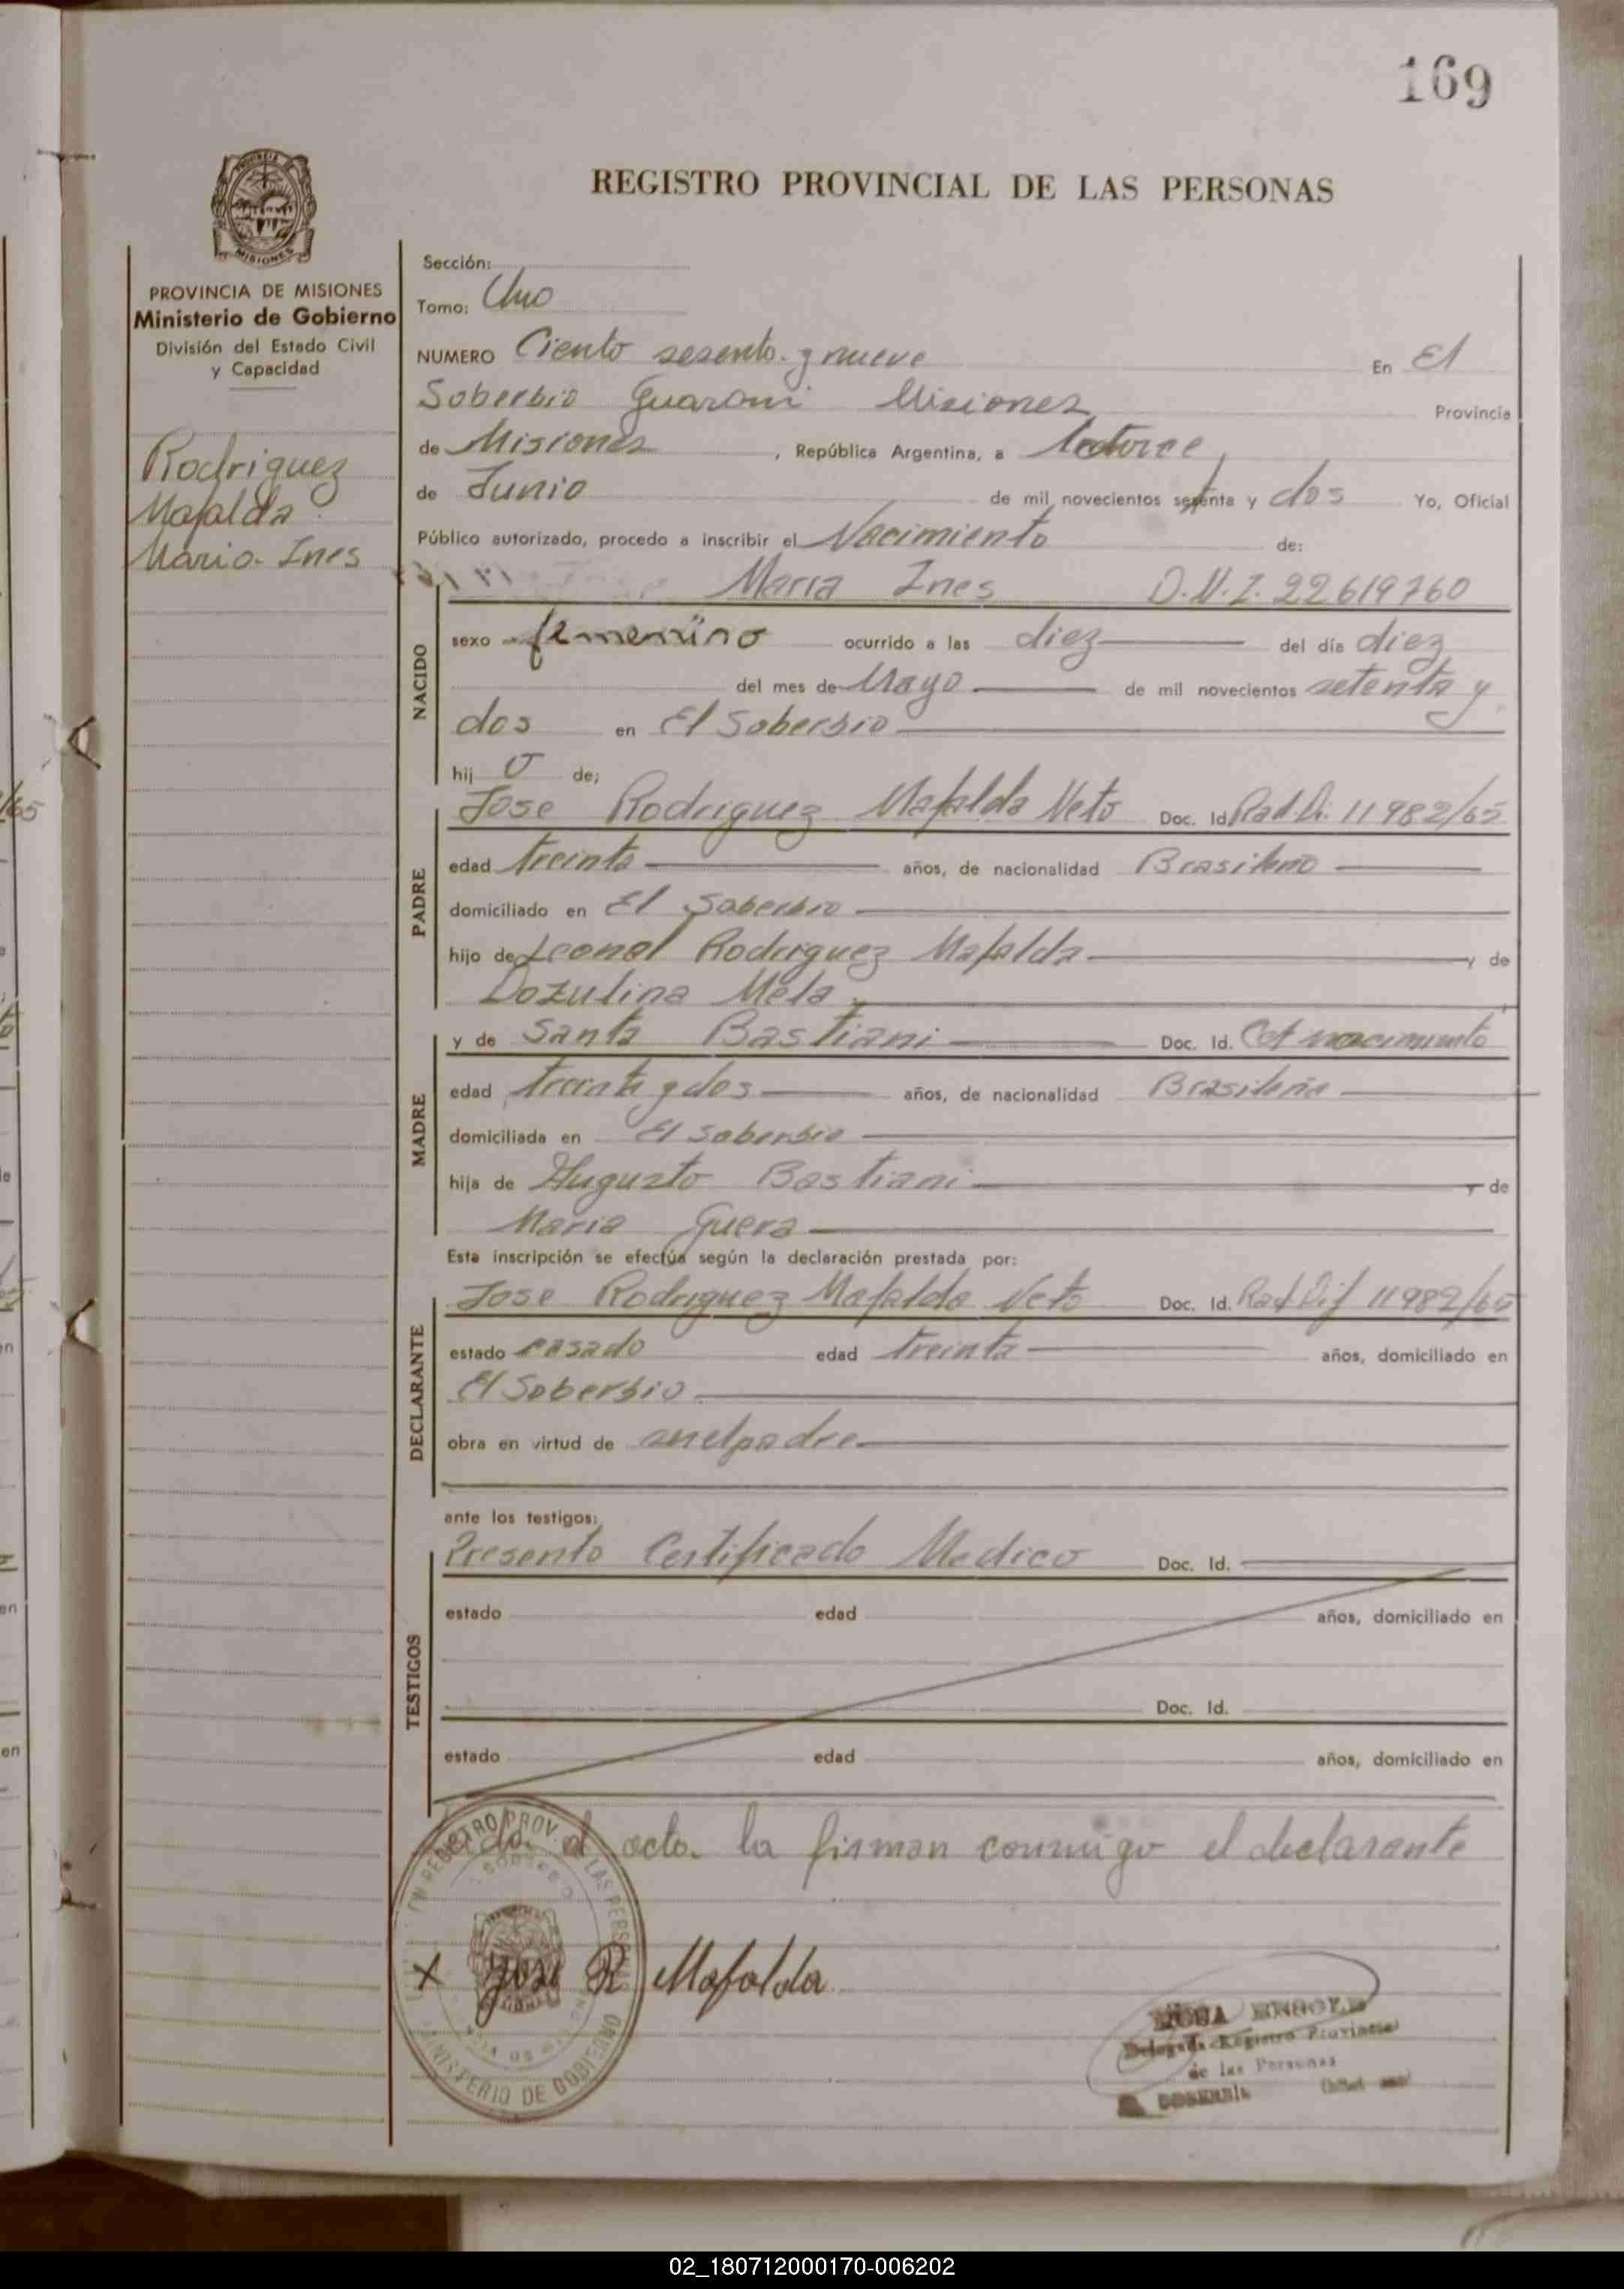 169
PROVINCIA DE MISIONES
Ministerio de Gobierno
División del Estado Civil
y Capacidad
Rodriguez
Mafalda
Maria Ines
REGISTRO PROVINCIAL DE LAS PERSONAS
Sección:
Tomo: Uno
NUMERO Ciento sesenta y nueve En El
Soberbio Guarani Misiones Provincia
de Misiones, República Argentina, a Catorce
de Junio de mil novecientos setenta y dos Yo, Oficial
Público autorizado, procedo a inscribir el Nacimiento de:
Maria Ines D.N.I. 22619760
NACIDO
sexo femenino ocurrido a las diez del día diez
del mes de Mayo de mil novecientos setenta y
dos en El Soberbio
hij o de;
PADRE
Jose Rodriguez Mafalda Neto Doc. Id. Rad Di. 11982/65
edad treinta años, de nacionalidad Brasileño
domiciliado en El Soberbio
hijo de Leonel Rodriguez Mafalda y de
Dozulina Mela
MADRE
y de Santa Bastiani Doc. Id. Cet nacimiento
edad treinta y dos años, de nacionalidad Brasileña
domiciliada en El Soberbio
hija de Augusto Bastiani y de
Maria Guera
Esta inscripción se efectúa según la declaración prestada por:
DECLARANTE
Jose Rodriguez Mafalda Neto Doc. Id. Rad Dif 11982/65
estado casado edad treinta años, domiciliado en
El Soberbio
obra en virtud de ser el padre
ante los testigos:
TESTIGOS
Presento Certificado Medico Doc. Id.
estado edad años, domiciliado en
Doc. Id.
estado edad años, domiciliado en
el acta la firman conmigo el declarante
X Jose R Mafalda
MINISTERIO DE GOBIERNO
Delegada Registro Provincial
de las Personas
02_180712000170-006202